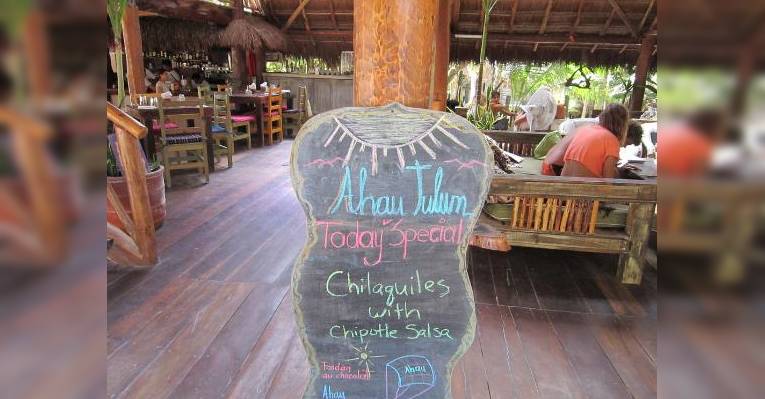 Ahau Tulum
Today Special
Chilaquiles
with
Chipotle Salsa
Fondan
au chocolat
Ahau
Ahau